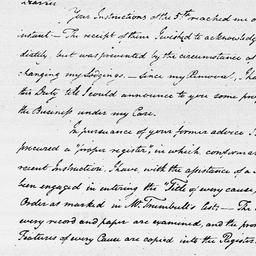 Your Instructions of the 5th reached me o
instant — The receipt of them I wished to acknowledg
diately, but was prevented by the circumstance of
changing my Lodgings. — Since my Removal, I ha
this Duty till I could announce to you some pro
the Business under my Care.
In pursuance of your former advice I
procured a "proper register", in which conforma
recent Instruction, I have, with the assistance of a
been engaged in entering the "Title of every cause,
Order as marked in Mr. Trumbull's list: — The
every record and paper are examined, and the pro
Features of every Cause are copied into the Register